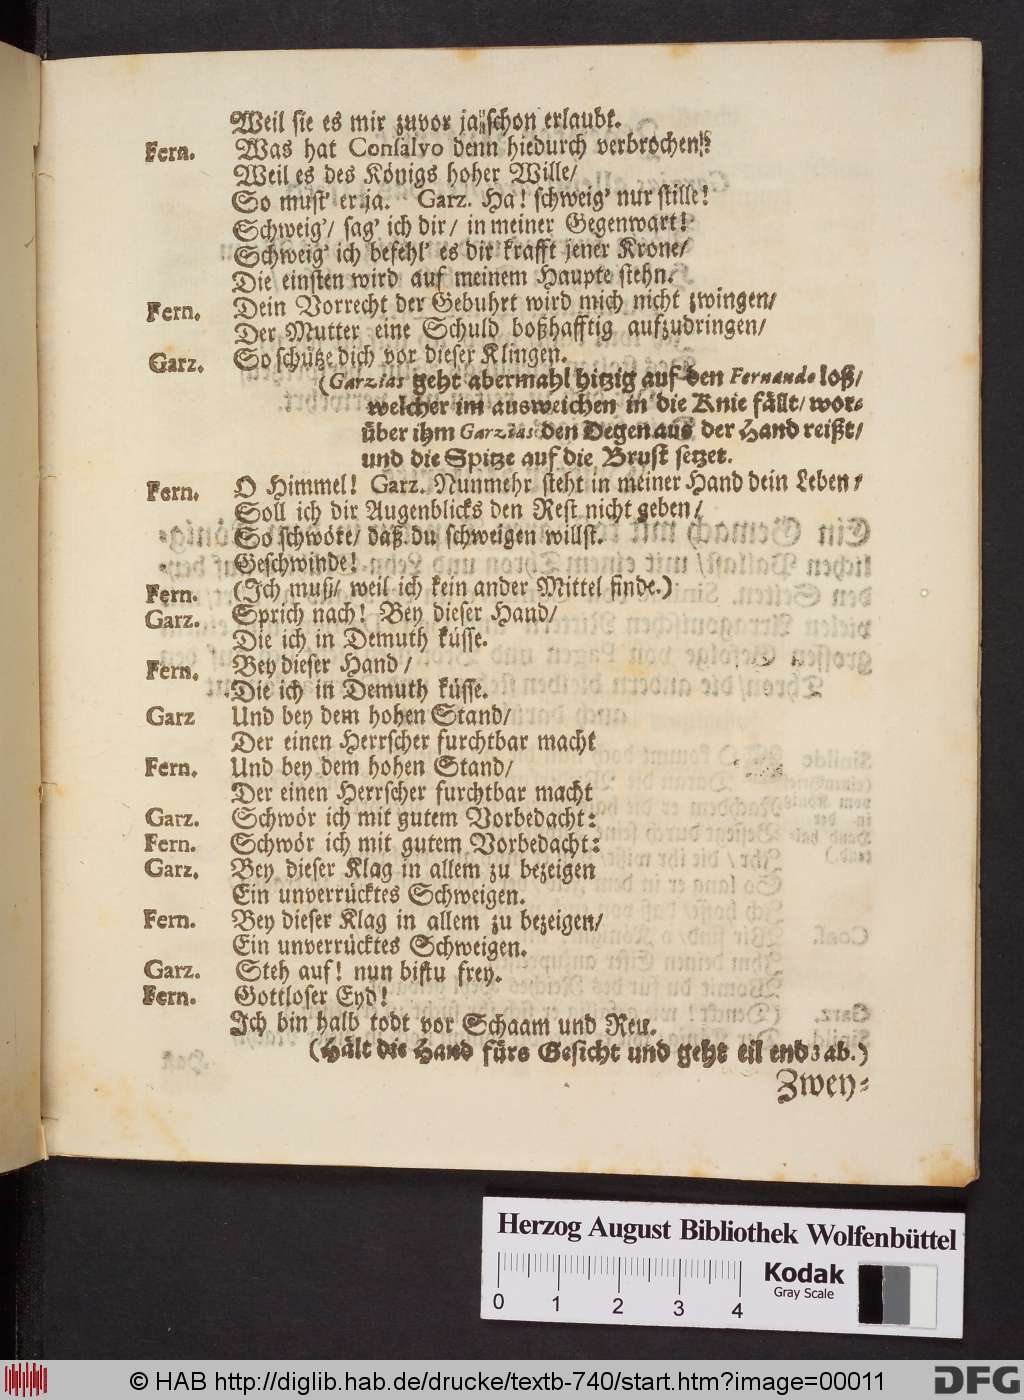 Weil sie es mir zuvor ja schon erlaubt.
Fern. Was hat Consalvo denn hiedurch verbrochen?
Weil es des Königs hoher Wille/
So must' er ja. Garz. Ha! schweig' nur stille!
Schweig'/ sag' ich dir/ in meiner Gegenwart!
Schweig' ich befehl' es dir krafft jener Krone/
Die einsten wird auf meinem Haupte stehn.
Fern. Dein Vorrecht der Gebuhrt wird mich nicht zwingen/
Der Mutter eine Schuld boßhafftig aufzudringen/
Garz. So schütze dich vor dieser Klingen.
(Garzias geht abermahl hitzig auf den Fernando loß/
welcher im ausweichen in die Knie fällt/ wor-
über ihm Garzias den Degen aus der Hand reißt/
und die Spitze auf die Brust setzet.
Fern. O Himmel! Garz. Nunmehr steht in meiner Hand dein Leben/
Soll ich dir Augenblicks den Rest nicht geben/
So schwöre/ daß du schweigen willst.
Geschwinde!
Fern. (Ich muß/ weil ich kein ander Mittel finde.)
Garz. Sprich nach! Bey dieser Hand/
Die ich in Demuth küsse.
Fern. Bey dieser Hand/
Die ich in Demuth küsse.
Garz Und bey dem hohen Stand/
Der einen Herrscher furchtbar macht
Fern. Und bey dem hohen Stand/
Der einen Herrscher furchtbar macht
Garz. Schwör ich mit gutem Vorbedacht:
Fern. Schwör ich mit gutem Vorbedacht:
Garz. Bey dieser Klag in allem zu bezeigen
Ein unverrücktes Schweigen.
Fern. Bey dieser Klag in allem zu bezeigen/
Ein unverrücktes Schweigen.
Garz. Steh auf! nun bistu frey.
Fern. Gottloser Eyd!
Ich bin halb todt vor Schaam und Reu.
(Hält die Hand fürs Gesicht und geht eilends ab.)
Zwey-
Herzog August Bibliothek Wolfenbüttel
0 1 2 3 4
Kodak
Gray Scale
© HAB http://diglib.hab.de/drucke/textb-740/start.htm?image=00011
DFG